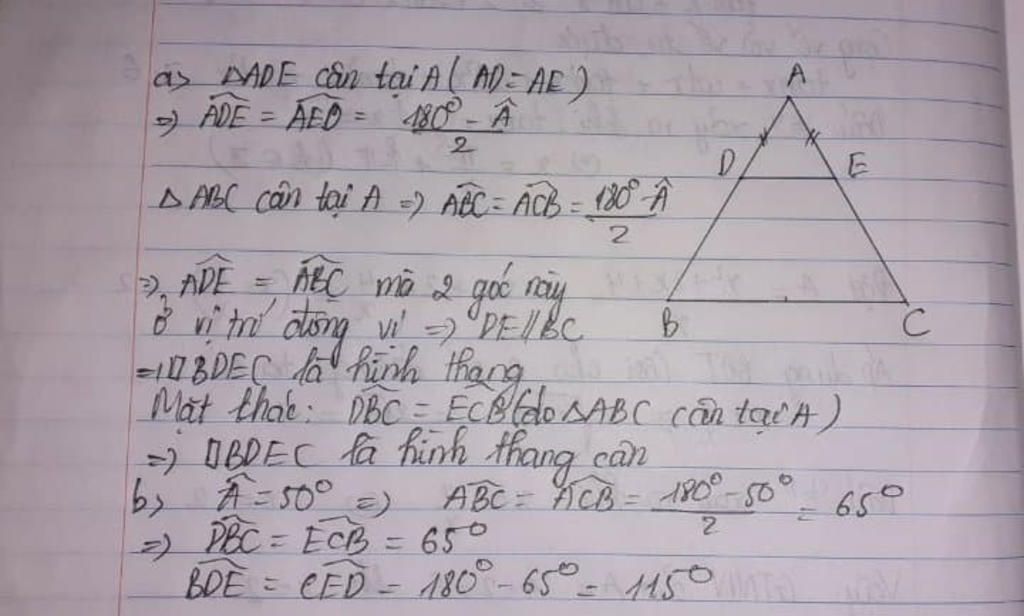 a> △ADE cân tại A ( AD = AE )
=> ADE^ = AED^ = (180° - Â)/2
△ABC cân tại A => ABC^ = ACB^ = (180° - Â)/2
=> ADE^ = ABC^ mà 2 góc này
ở vị trí đồng vị => DE//BC
=> □BDEC là hình thang
Mặt thác: DBC^ = ECB^ (do △ABC cân tại A)
=> □BDEC là hình thang cân
b> Â = 50° => ABC^ = ACB^ = (180° - 50°)/2 = 65°
=> DBC^ = ECB^ = 65°
BDE^ = CED^ = 180° - 65° = 115°
A
D
E
B
C